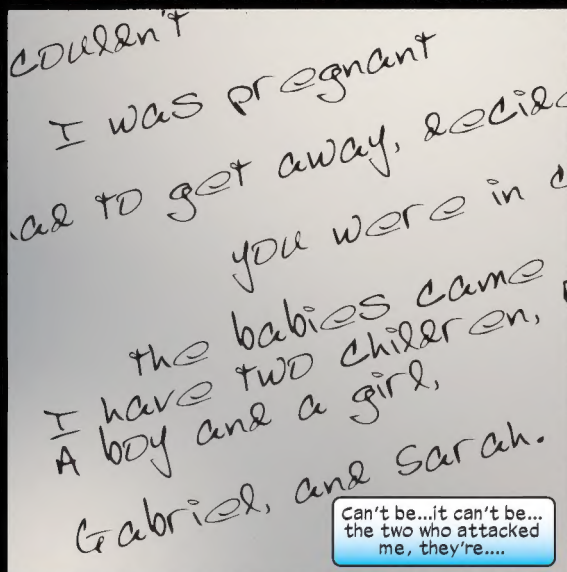 couldn't
I was pregnant
ad to get away, decide
you were in
the babies came
I have two children,
A boy and a girl,
Gabriel, and Sarah.
Can't be...it can't be...
the two who attacked
me, they're....